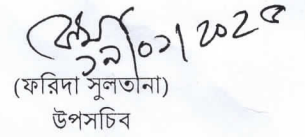 ১৯/০১/২০২৫
(ফরিদা সুলতানা)
উপসচিব